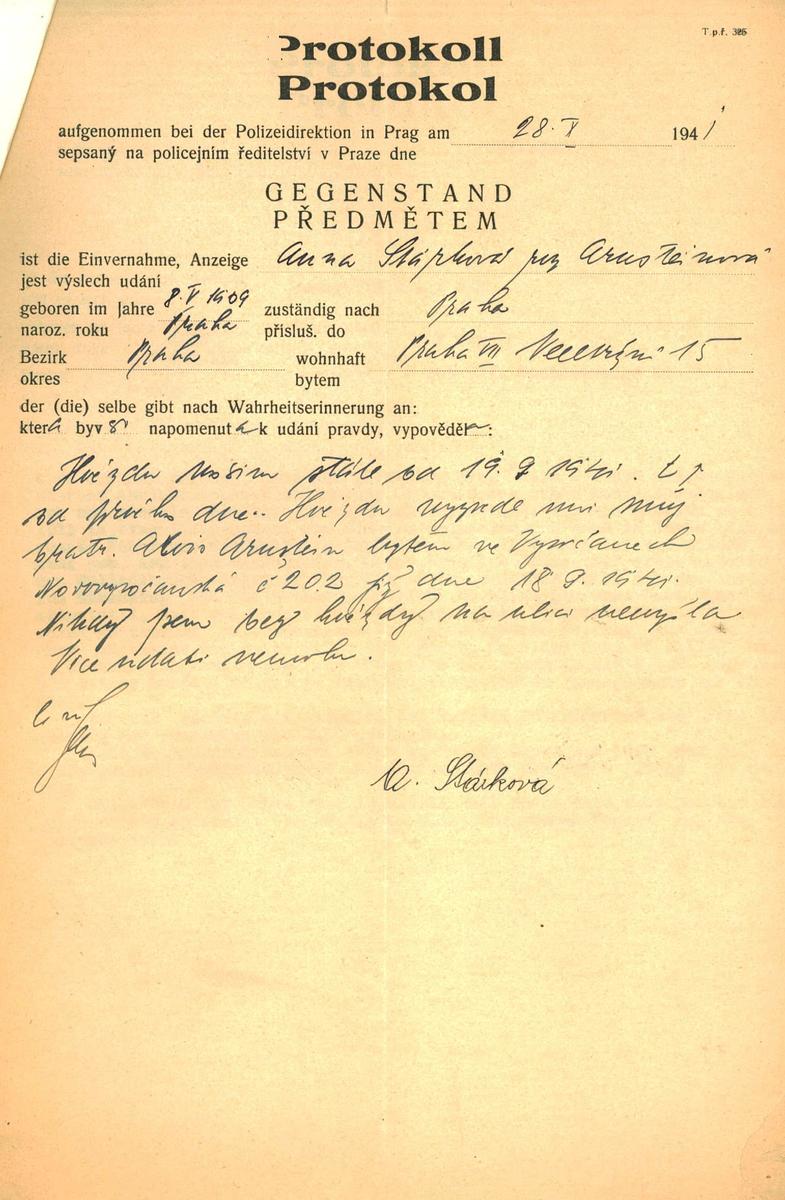 T.p.ř. 325
Protokoll
Protokol
aufgenommen bei der Polizeidirektion in Prag am 28. X 1941
sepsaný na policejním ředitelství v Praze dne
GEGENSTAND
PŘEDMĚTEM
ist die Einvernahme, Anzeige Anna Stárková roz Arnsteinová
jest výslech udání
geboren im Jahre 8. V 1909 zuständig nach Praha
naroz. roku Praha přísluš. do
Bezirk Praha wohnhaft Praha VII 15
okres bytem
der (die) selbe gibt nach Wahrheitserinnerung an:
která byvši napomenuta k udání pravdy, vypověděla:
Hvězdu nosím stále od 19. 9 1941. t j
od prvého dne. Hvězdu mi můj
bratr. Arnstein bytem ve Vysočanech
Novovysočanská č 202 již dne 18 9. 1941.
Nikdy jsem bez hvězdy na ulici nevyšla
Více udati nemohu.
A. Stárková